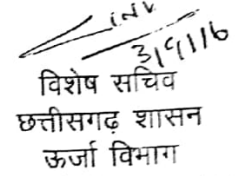 3/9/16
विशेष सचिव
छत्तीसगढ़ शासन
ऊर्जा विभाग